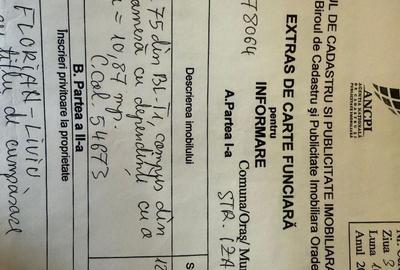 UL DE CADASTRU SI PUBLICITATE IMOBILIARA
Biroul de Cadastru şi Publicitate Imobiliara Orade
ANCPI
Ziua 3
Luna 1
Anul 2
78064
EXTRAS DE CARTE FUNCIARĂ
pentru
INFORMARE
Comuna/Oraş/Mu
A.Partea I-a
STR. IZA
Descrierea imobilului
75 din BL. T1, compus din
cameră cu dependințe cu o
= 10,87 mp.
C. Col. 54673
B. Partea a II-a
Înscrieri privitoare la proprietate
FLORIAN-LIVIU,
cu titlu de cumpărare